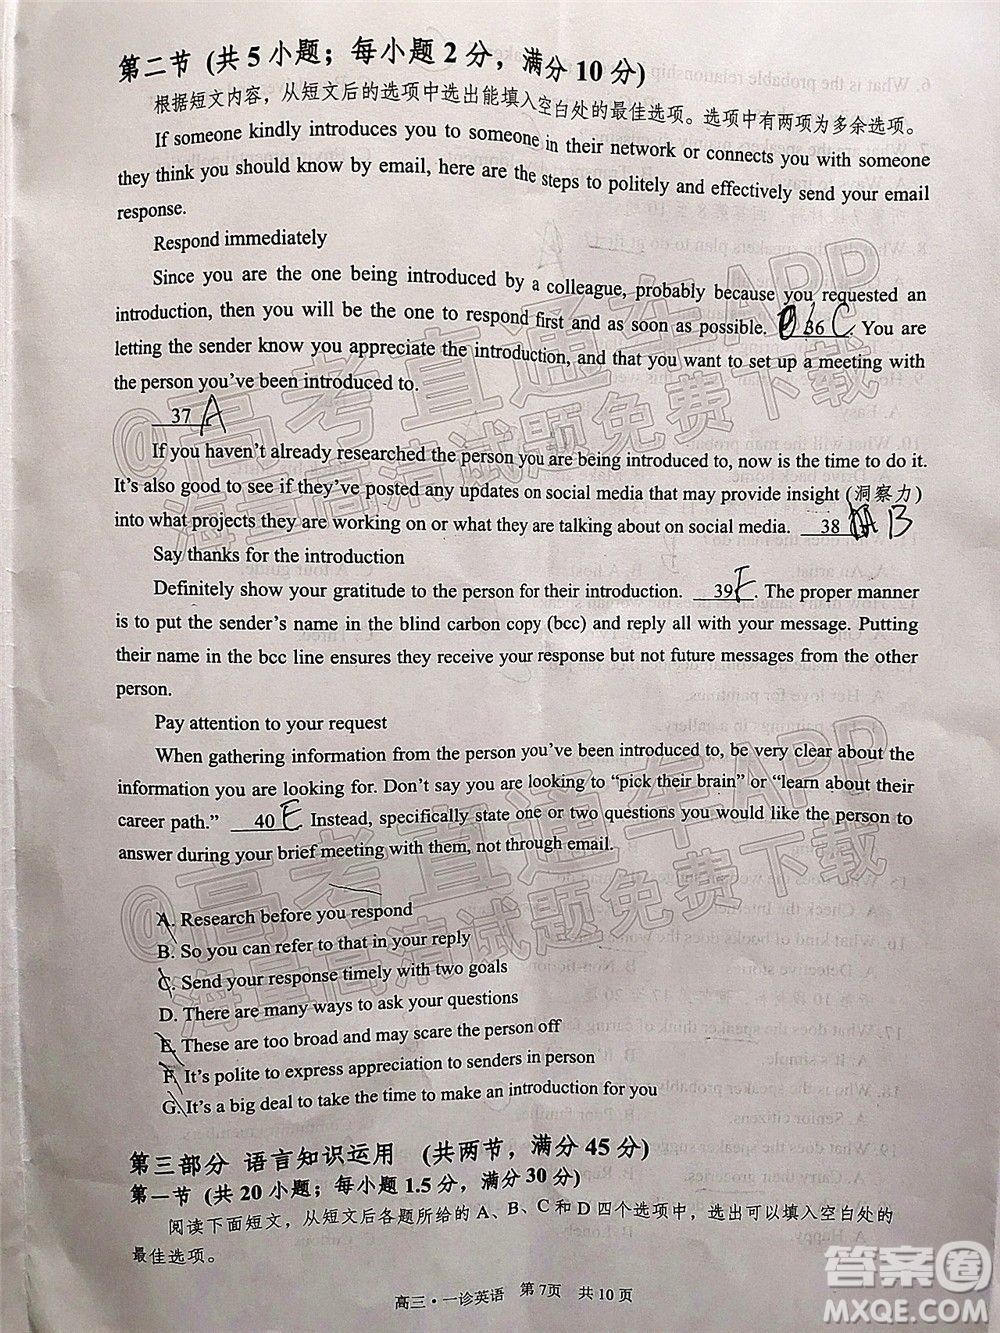 第二节 (共 5 小题；每小题 2 分，满分 10 分)
根据短文内容，从短文后的选项中选出能填入空白处的最佳选项。选项中有两项为多余选项。
If someone kindly introduces you to someone in their network or connects you with someone
they think you should know by email, here are the steps to politely and effectively send your email
response.
Respond immediately
Since you are the one being introduced by a colleague, probably because you requested an
introduction, then you will be the one to respond first and as soon as possible. 36 C. You are
letting the sender know you appreciate the introduction, and that you want to set up a meeting with
the person you've been introduced to.
37 A
If you haven't already researched the person you are being introduced to, now is the time to do it.
It's also good to see if they've posted any updates on social media that may provide insight (洞察力)
into what projects they are working on or what they are talking about on social media. 38 B
Say thanks for the introduction
Definitely show your gratitude to the person for their introduction. 39 F. The proper manner
is to put the sender's name in the blind carbon copy (bcc) and reply all with your message. Putting
their name in the bcc line ensures they receive your response but not future messages from the other
person.
Pay attention to your request
When gathering information from the person you've been introduced to, be very clear about the
information you are looking for. Don't say you are looking to "pick their brain" or "learn about their
career path." 40 E. Instead, specifically state one or two questions you would like the person to
answer during your brief meeting with them, not through email.
A. Research before you respond
B. So you can refer to that in your reply
C. Send your response timely with two goals
D. There are many ways to ask your questions
E. These are too broad and may scare the person off
F. It's polite to express appreciation to senders in person
G. It's a big deal to take the time to make an introduction for you
第三部分 语言知识运用 (共两节，满分 45 分)
第一节 (共 20 小题；每小题 1.5 分，满分 30 分)
阅读下面短文，从短文后各题所给的 A、B、C 和 D 四个选项中，选出可以填入空白处的
最佳选项。
高三·一诊英语 第 7页 共 10 页
@高考直通车APP
海量高清试题免费下载
@高考直通车APP
海量高清试题免费下载
答案圈
MXQE.COM